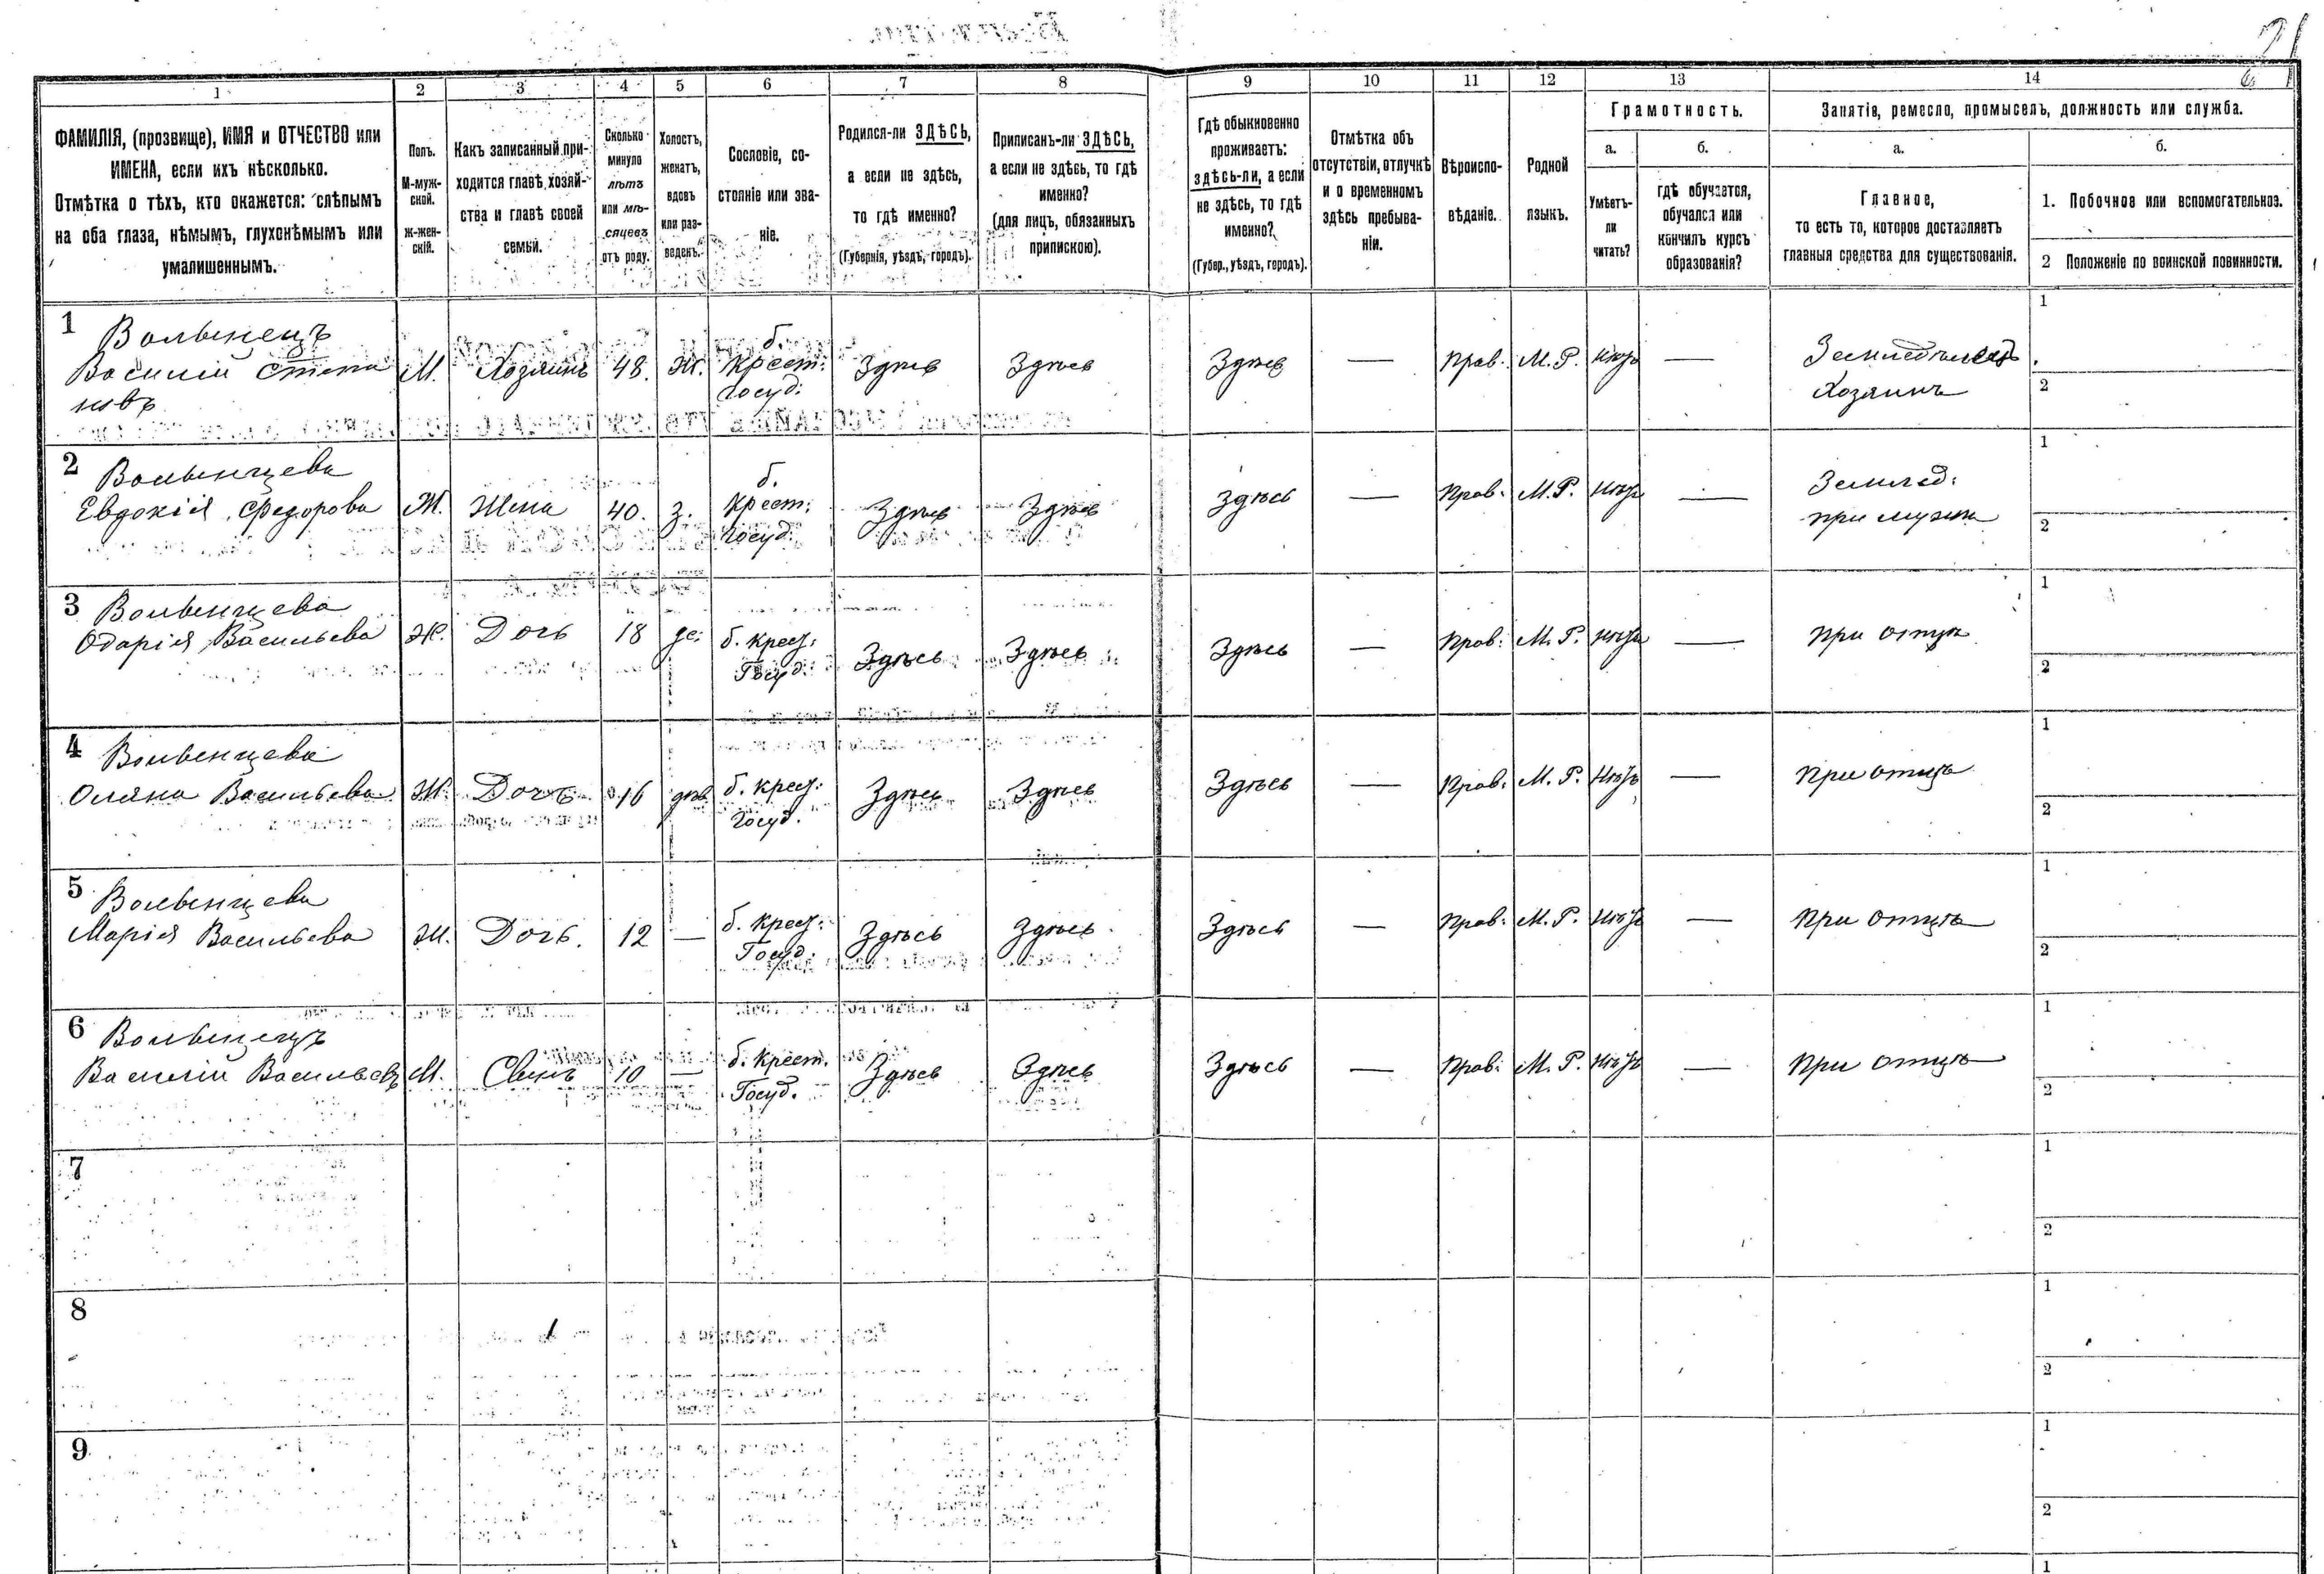 1 2 3 4 5 6 7 8 9 10 11 12 13 14
ФАМИЛІЯ, (прозвище), ИМЯ и ОТЧЕСТВО или
ИМЕНА, если ихъ нѣсколько.
Отмѣтка о тѣхъ, кто окажется: слѣпымъ
на оба глаза, нѣмымъ, глухонѣмымъ или
умалишеннымъ.
Полъ.
М-муж-
ской.
ж-жен-
скій.
Какъ записанный при-
ходится главѣ хозяй-
ства и главѣ своей
семьи.
Сколько
минуло
лѣтъ
или мѣ-
сяцевъ
отъ роду.
Холостъ,
женатъ,
вдовъ
или раз-
веденъ.
Сословіе, со-
стояніе или зва-
ніе.
Родился-ли ЗДѢСЬ,
а если не здѣсь,
то гдѣ именно?
(Губернія, уѣздъ, городъ).
Приписанъ-ли ЗДѢСЬ,
а если не здѣсь, то гдѣ
именно?
(для лицъ, обязанныхъ
припискою).
Гдѣ обыкновенно
проживаетъ:
здѣсь-ли, а если
не здѣсь, то гдѣ
именно?
(Губер., уѣздъ, городъ).
Отмѣтка объ
отсутствіи, отлучкѣ
и о временномъ
здѣсь пребыва-
ніи.
Вѣроиспо-
вѣданіе.
Родной
языкъ.
Грамотность.
а.
Умѣетъ-
ли
читать?
б.
гдѣ обучается,
обучался или
кончилъ курсъ
образованія?
Занятія, ремесло, промыселъ, должность или служба.
а.
Главное,
то есть то, которое доставляетъ
главныя средства для существованія.
б.
1. Побочное или вспомогательное.
2 Положеніе по воинской повинности.
1 Волынецъ
Василій Степа
новъ
М. Хозяинъ 48. Ж.
б.
Крест.
Госуд.
Здѣсь Здѣсь Здѣсь — Прав. М. Р. нѣтъ —
Земледѣлецъ
Хозяинъ
1
2
2 Волынцева
Евдокія Федорова
Ж. Жена 40. З.
б.
Крест.
Госуд.
Здѣсь Здѣсь Здѣсь — Прав. М. Р. нѣтъ —
Землед.
при мужѣ
1
2
3 Волынцева
Одарія Васильева
Ж. Дочь 18
б. крест.
Госуд.
Здѣсь Здѣсь Здѣсь — Прав. М. Р. нѣтъ —
при отцѣ
1
2
4 Волынцева
Оляна Васильева
Ж. Дочь 16 дѣв.
б. крест.
Госуд.
Здѣсь Здѣсь Здѣсь — Прав. М. Р. нѣтъ —
при отцѣ
1
2
5 Волынцева
Марія Васильева
Ж. Дочь. 12 —
б. крест.
Госуд.
Здѣсь Здѣсь Здѣсь — Прав. М. Р. нѣтъ —
при отцѣ
1
2
6 Волынецъ
Василій Васильевъ
М. Сынъ 10 —
б. Крест.
Госуд.
Здѣсь Здѣсь Здѣсь — Прав. М. Р. нѣтъ —
при отцѣ
1
2
7
1
2
8
1
2
9
1
2
1